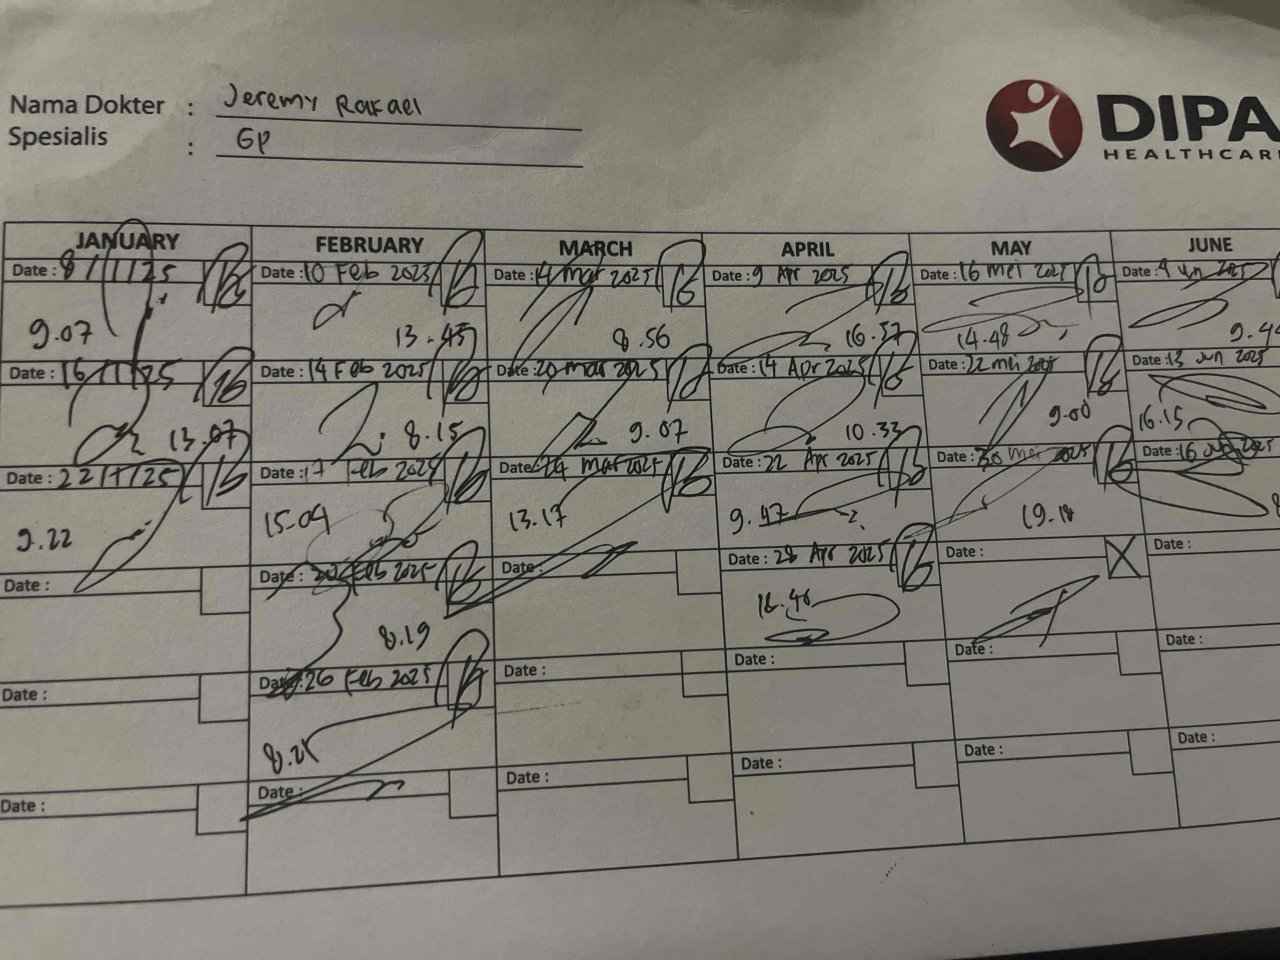 Nama Dokter : Jeremy Rafael
Spesialis : GP
DIPA
HEALTHCAR
JANUARY FEBRUARY MARCH APRIL MAY JUNE
Date : 8/1/25 Date : 10 Feb 2025 Date : 14 Mar 2025 Date : 9 Apr 2025 Date : 16 Mei 2025 Date : Jun 2025
9.07 13.45 8.56 16.37 14.48 9.4
Date : 16/1/25 Date : 14 Feb 2025 Date : 20 Mar 2025 Date : 14 Apr 2025 Date : 22 Mei 2025 Date : 13 Jun 2025
13.07 8.15 9.07 10.33 9.00 16.15
Date : 22/1/25 Date : 17 Feb 2025 Date : 24 Mar 2025 Date : 22 Apr 2025 Date : 30 Mei 2025 Date : 16 Jun 2025
9.22 15.04 13.17 9.47 19.18
Date : Date : 20 Feb 2025 Date : Date : 28 Apr 2025 Date : Date :
8.19 16.46
Date : Date : 26 Feb 2025 Date : Date : Date : Date :
8.21
Date : Date : Date : Date : Date : Date :